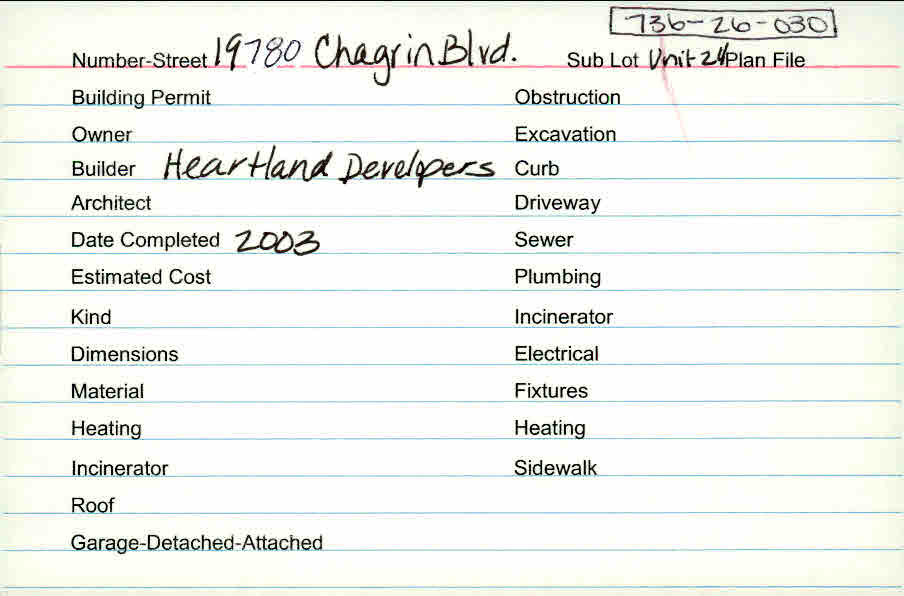 736-26-030
Number-Street 19780 Chagrin Blvd. Sub Lot Unit 24 Plan File
Building Permit Obstruction
Owner Excavation
Builder Heartland Developers Curb
Architect Driveway
Date Completed 2003 Sewer
Estimated Cost Plumbing
Kind Incinerator
Dimensions Electrical
Material Fixtures
Heating Heating
Incinerator Sidewalk
Roof
Garage-Detached-Attached